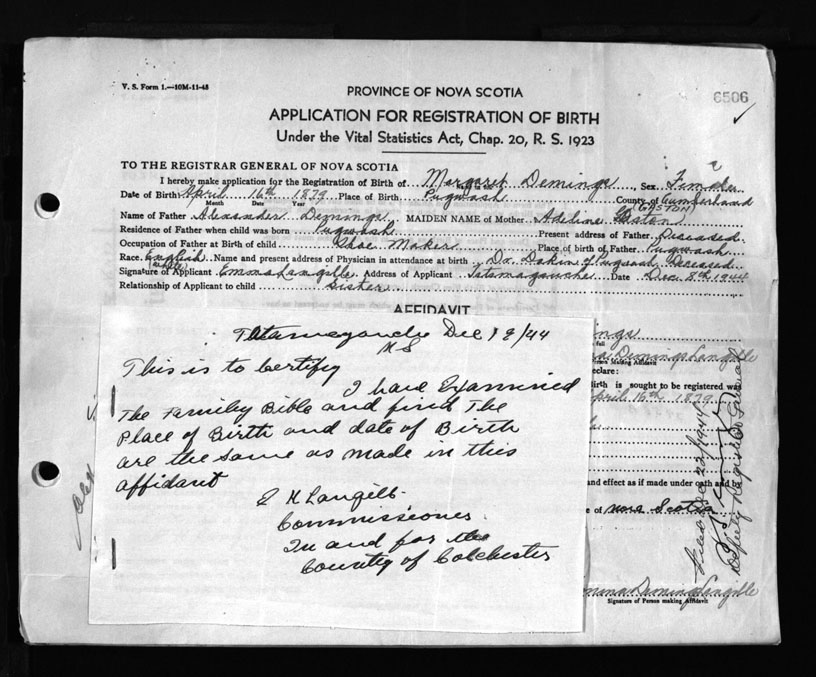 V. S. Form 1.—10M-11-43
PROVINCE OF NOVA SCOTIA
6506
APPLICATION FOR REGISTRATION OF BIRTH
Under the Vital Statistics Act, Chap. 20, R. S. 1923
TO THE REGISTRAR GENERAL OF NOVA SCOTIA
I hereby make application for the Registration of Birth of Margaret Demings, Sex Female
Date of Birth April 16th 1879 Place of Birth Pugwash County of Cumberland
Month Date Year
Name of Father Alexander Demings MAIDEN NAME of Mother Adeline
Residence of Father when child was born Pugwash Present address of Father Deceased
Occupation of Father at Birth of child Shoe Maker Place of birth of Father Pugwash
Race English (white) Name and present address of Physician in attendance at birth Dr. Dakin of Pugwash, Deceased
Signature of Applicant Emma Langille Address of Applicant Tatamagouche Date Dec 8th 1944
Relationship of Applicant to child Sister
AFFIDAVIT
Tatamagouche Dec 12/44
N S
This is to Certify
I have Examined
The Family Bible and find The
Place of Birth and date of Birth
are the same as made in this
affidavit
E H Langille
Commissioner
In and for the
County of Colchester
ings
Demings Langille
Making Affidavit
declare:
Birth is sought to be registered was
April 16th 1879
and effect as if made under oath and by
of Nova Scotia
Emma Demings Langille
Signature of Person making Affidavit
Filed Dec 22/1944
Deputy Registrar General